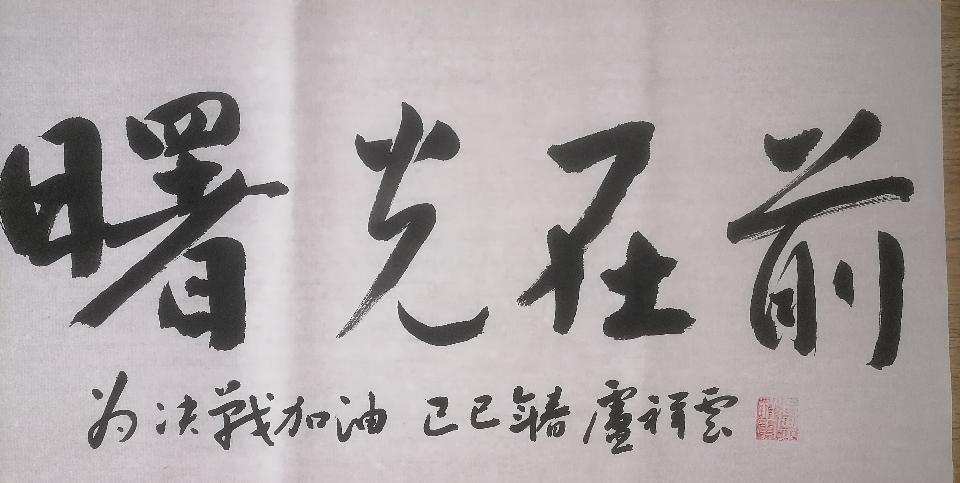 曙光在前
为决战加油 己巳年春 盧祥雲